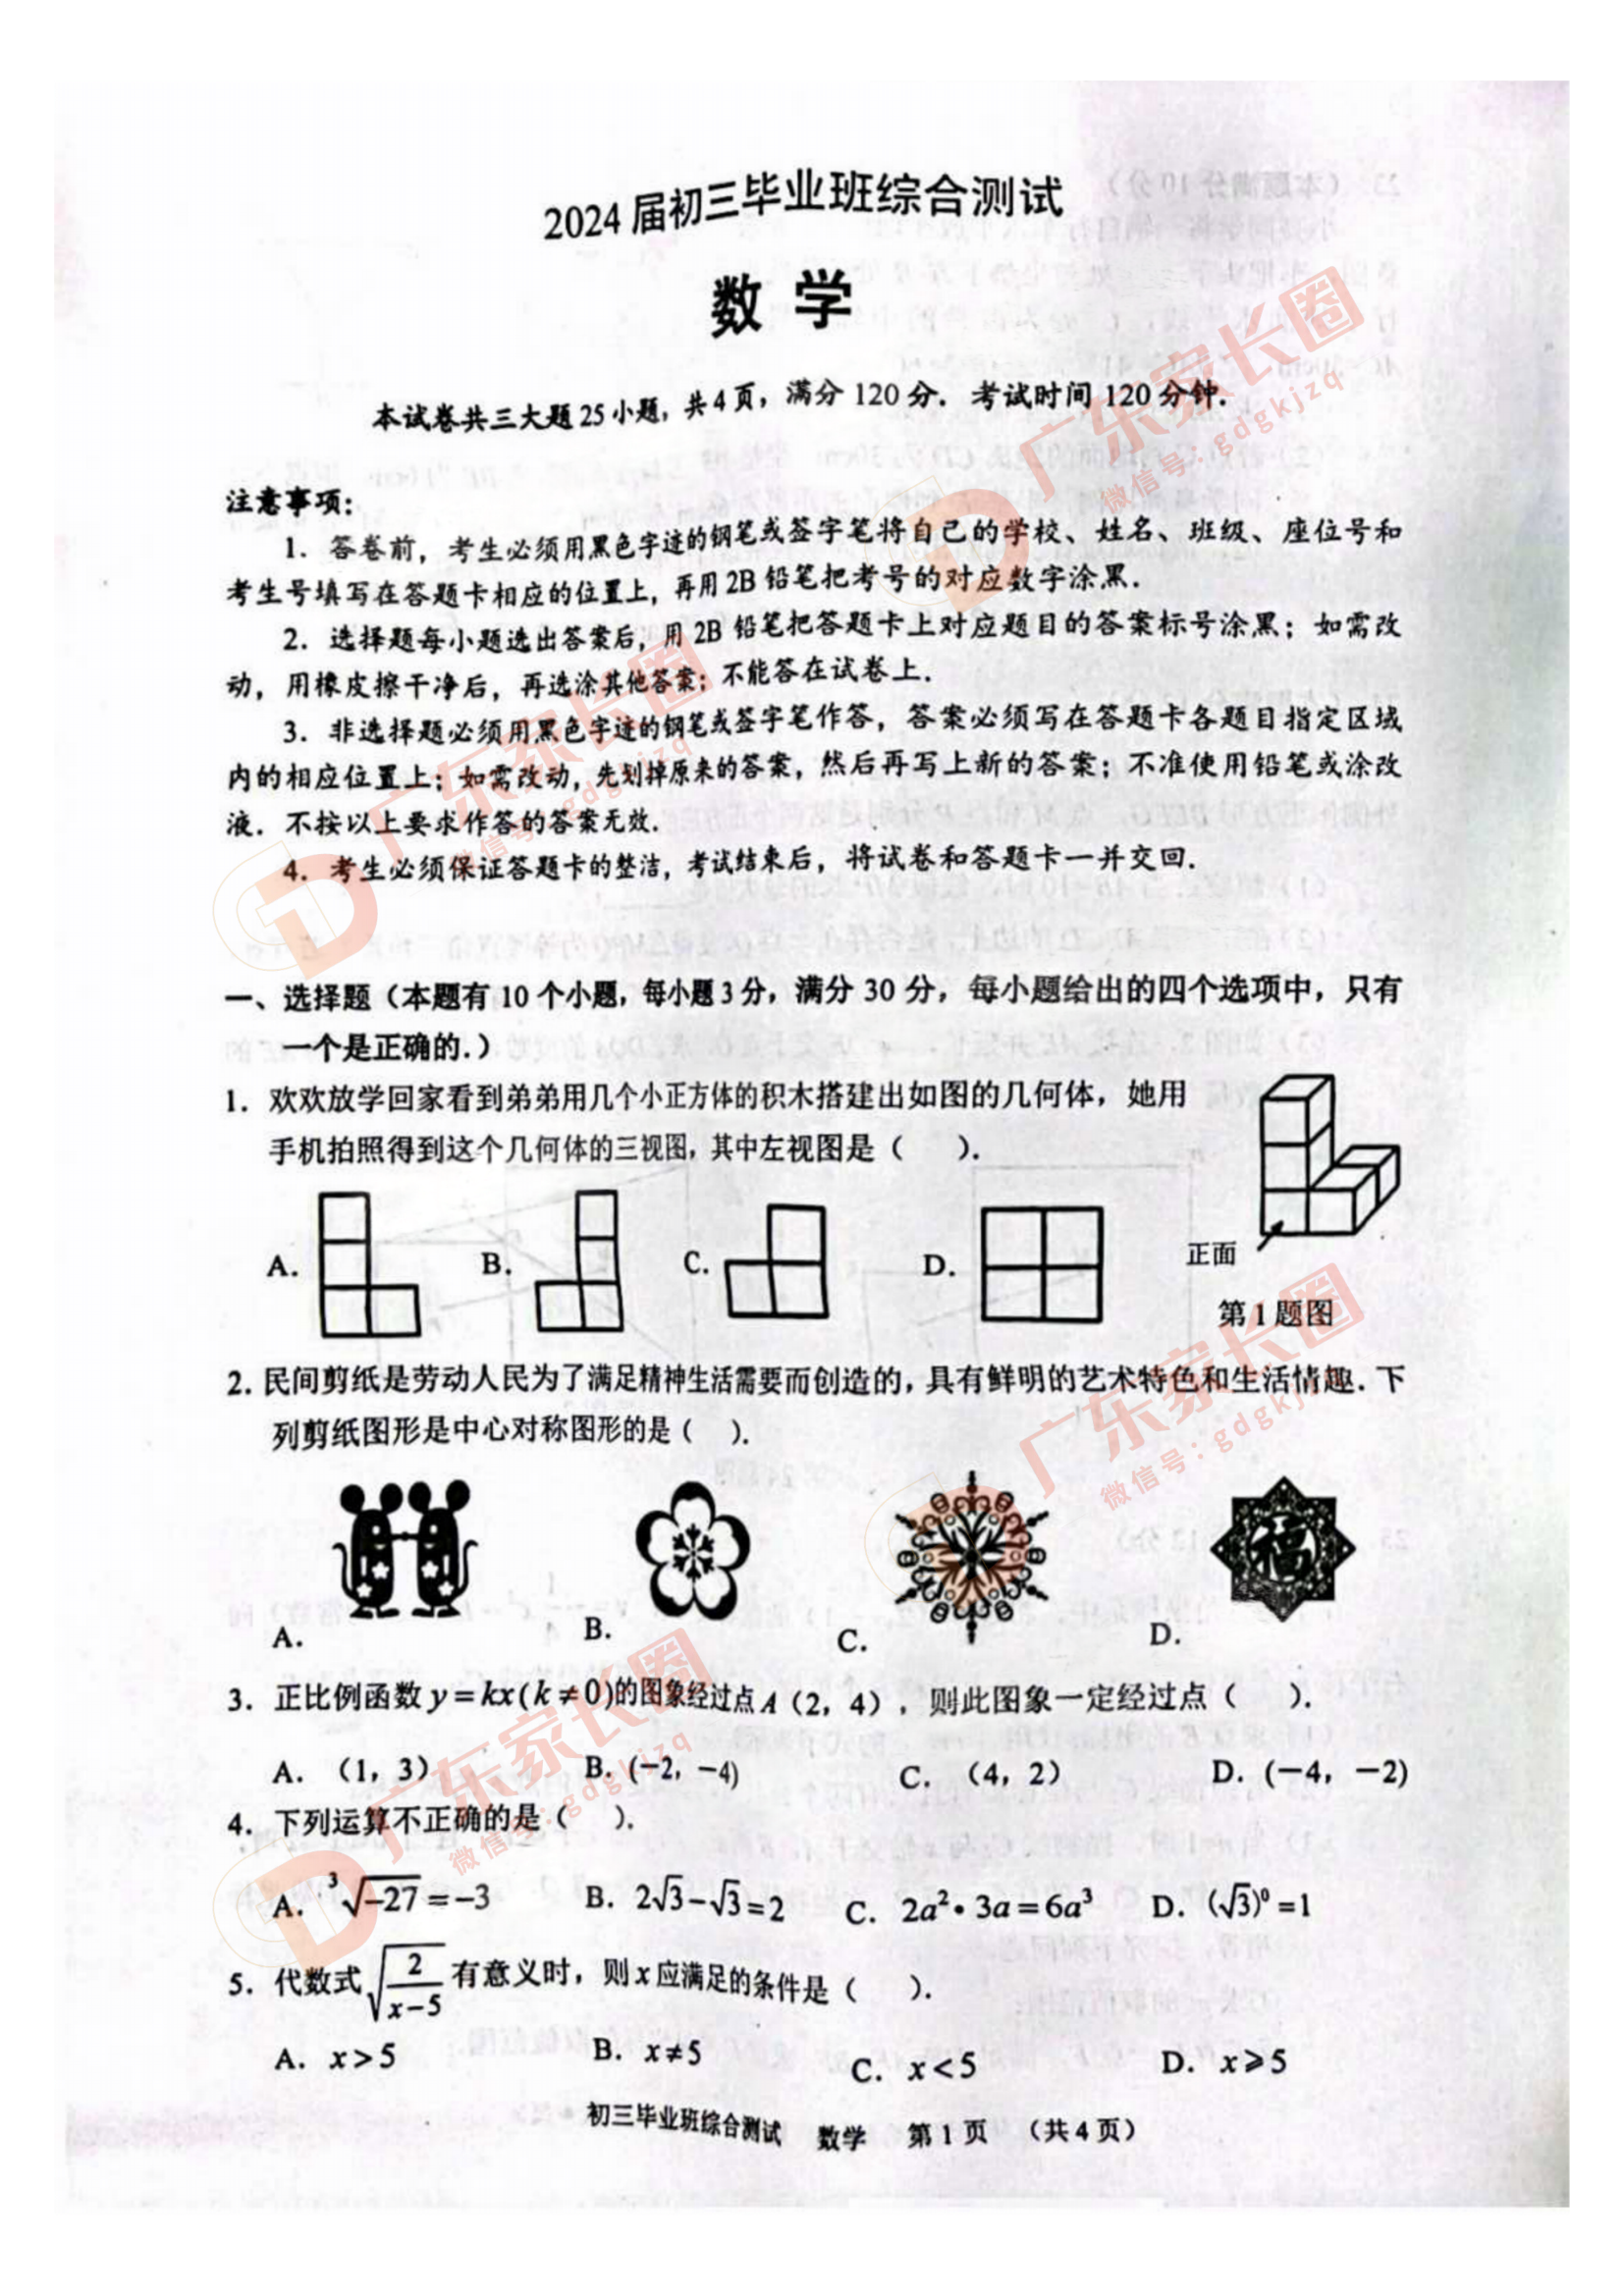 2024届初三毕业班综合测试
数 学
本试卷共三大题25小题，共4页，满分120分．考试时间120分钟．
注意事项：
1．答卷前，考生必须用黑色字迹的钢笔或签字笔将自己的学校、姓名、班级、座位号和
考生号填写在答题卡相应的位置上，再用2B铅笔把考号的对应数字涂黑．
2．选择题每小题选出答案后，用2B铅笔把答题卡上对应题目的答案标号涂黑；如需改
动，用橡皮擦干净后，再选涂其他答案；不能答在试卷上．
3．非选择题必须用黑色字迹的钢笔或签字笔作答，答案必须写在答题卡各题目指定区域
内的相应位置上；如需改动，先划掉原来的答案，然后再写上新的答案；不准使用铅笔或涂改
液．不按以上要求作答的答案无效．
4．考生必须保证答题卡的整洁，考试结束后，将试卷和答题卡一并交回．
一、选择题（本题有10个小题，每小题3分，满分30分，每小题给出的四个选项中，只有
一个是正确的．）
1．欢欢放学回家看到弟弟用几个小正方体的积木搭建出如图的几何体，她用
手机拍照得到这个几何体的三视图，其中左视图是（　　）．
A． B． C． D． 正面
第1题图
2．民间剪纸是劳动人民为了满足精神生活需要而创造的，具有鲜明的艺术特色和生活情趣．下
列剪纸图形是中心对称图形的是（　　）．
福
A． B． C． D．
3．正比例函数y=kx(k≠0)的图象经过点A（2，4），则此图象一定经过点（　　）．
A．（1，3） B．(−2，−4) C．（4，2） D．(−4，−2)
4．下列运算不正确的是（　　）．
A．³√−27=−3 B．2√3−√3=2 C．2a²•3a=6a³ D．(√3)⁰=1
5．代数式√(2/(x−5))有意义时，则x应满足的条件是（　　）．
A．x>5 B．x≠5 C．x<5 D．x⩾5
初三毕业班综合测试 数学 第1页 （共4页）
广东家长圈
微信号：gdgkjzq
广东家长圈
微信号：gdgkjzq
广东家长圈
微信号：gdgkjzq
广东家长圈
微信号：gdgkjzq